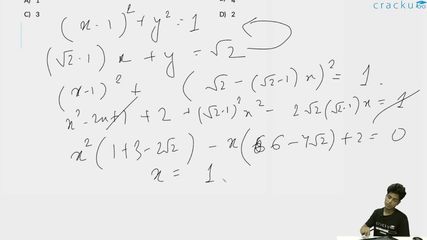 cracku
A) 1
C) 3
D) 2
(x - 1)² + y² = 1
(√2 - 1) x + y = √2
(x - 1)² + (√2 - (√2 - 1) x)² = 1
x² - 2x + 1 + 2 + (√2 - 1)² x² - 2√2 (√2 - 1) x = 1
x² (1 + 3 - 2√2) - x (6 - 7√2) + 2 = 0
x = 1.